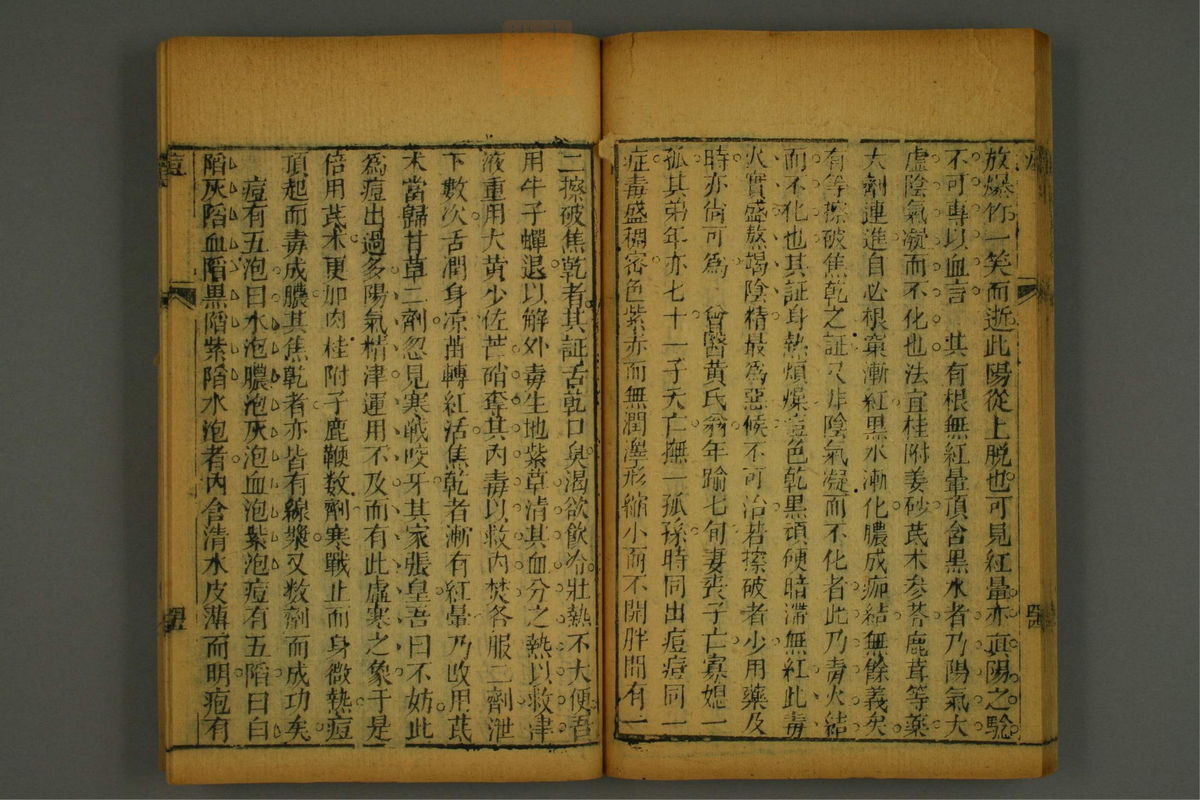 放爆作一笑而逝此陽從上脫也可見紅暈亦真陽之驗
不可專以血言　其有根無紅暈頂含黑水者乃陽氣大
虛陰氣凝而不化也法宜桂附姜砂芪朮參苓鹿茸等藥
大劑連進自必根窠漸紅黑水漸化膿成痂結無餘義矣
有等擦破焦乾之証又非陰氣凝而不化者此乃毒火結
而不化也其証身熱煩燥痘色乾黑頑硬暗滯無紅此毒
火實盛熬竭陰精最為惡候不可治若擦破者少用藥及
時亦尚可為　曾醫黃氏翁年踰七旬妻喪子亡寡媳一
孤其弟年亦七十一子夭亡撫一孤孫時同出痘痘同一
症毒盛稠密色紫赤而無潤澤形縮小而不開胖間有一
二擦破焦乾者其証舌乾口臭渴欲飲冷壯熱不大便吾
用牛子蟬退以解外毒生地紫草清其血分之熱以救津
液重用大黃少佐芒硝奪其內毒以救內焚各服二劑泄
下數次舌潤身凉苗轉紅活焦乾者漸有紅暈乃改用芪
朮當歸甘草二劑忽見寒戰咬牙其家張皇吾曰不妨此
為痘出過多陽氣精津運用不及而有此虛寒之象于是
倍用芪朮更加肉桂附子鹿鞭數劑寒戰止而身微熱痘
頂起而毒成膿其焦乾者亦皆有線漿又數劑而成功矣
痘有五泡曰水泡膿泡灰泡血泡紫泡痘有五陷曰白
陷灰陷血陷黑陷紫陷水泡者內含清水皮薄而明疱有
痘